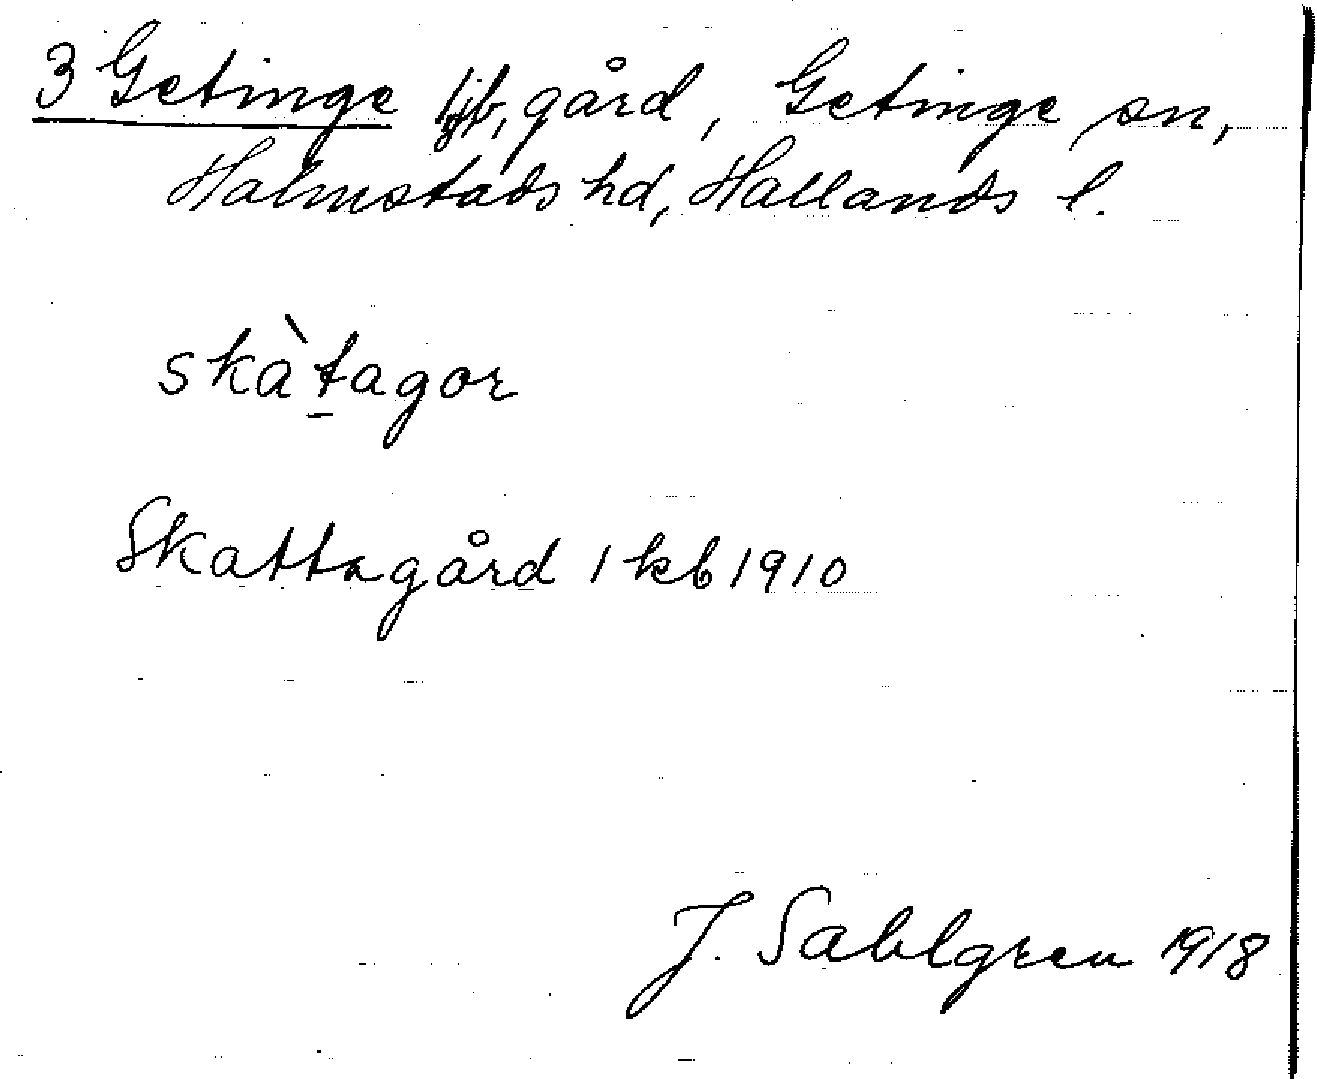 3 Getinge kjb, gård, Getinge sn,
Halmstads hd, Hallands l.
skàt̲agor
Skattagård 1 kb 1910
J. Sahlgren 1918